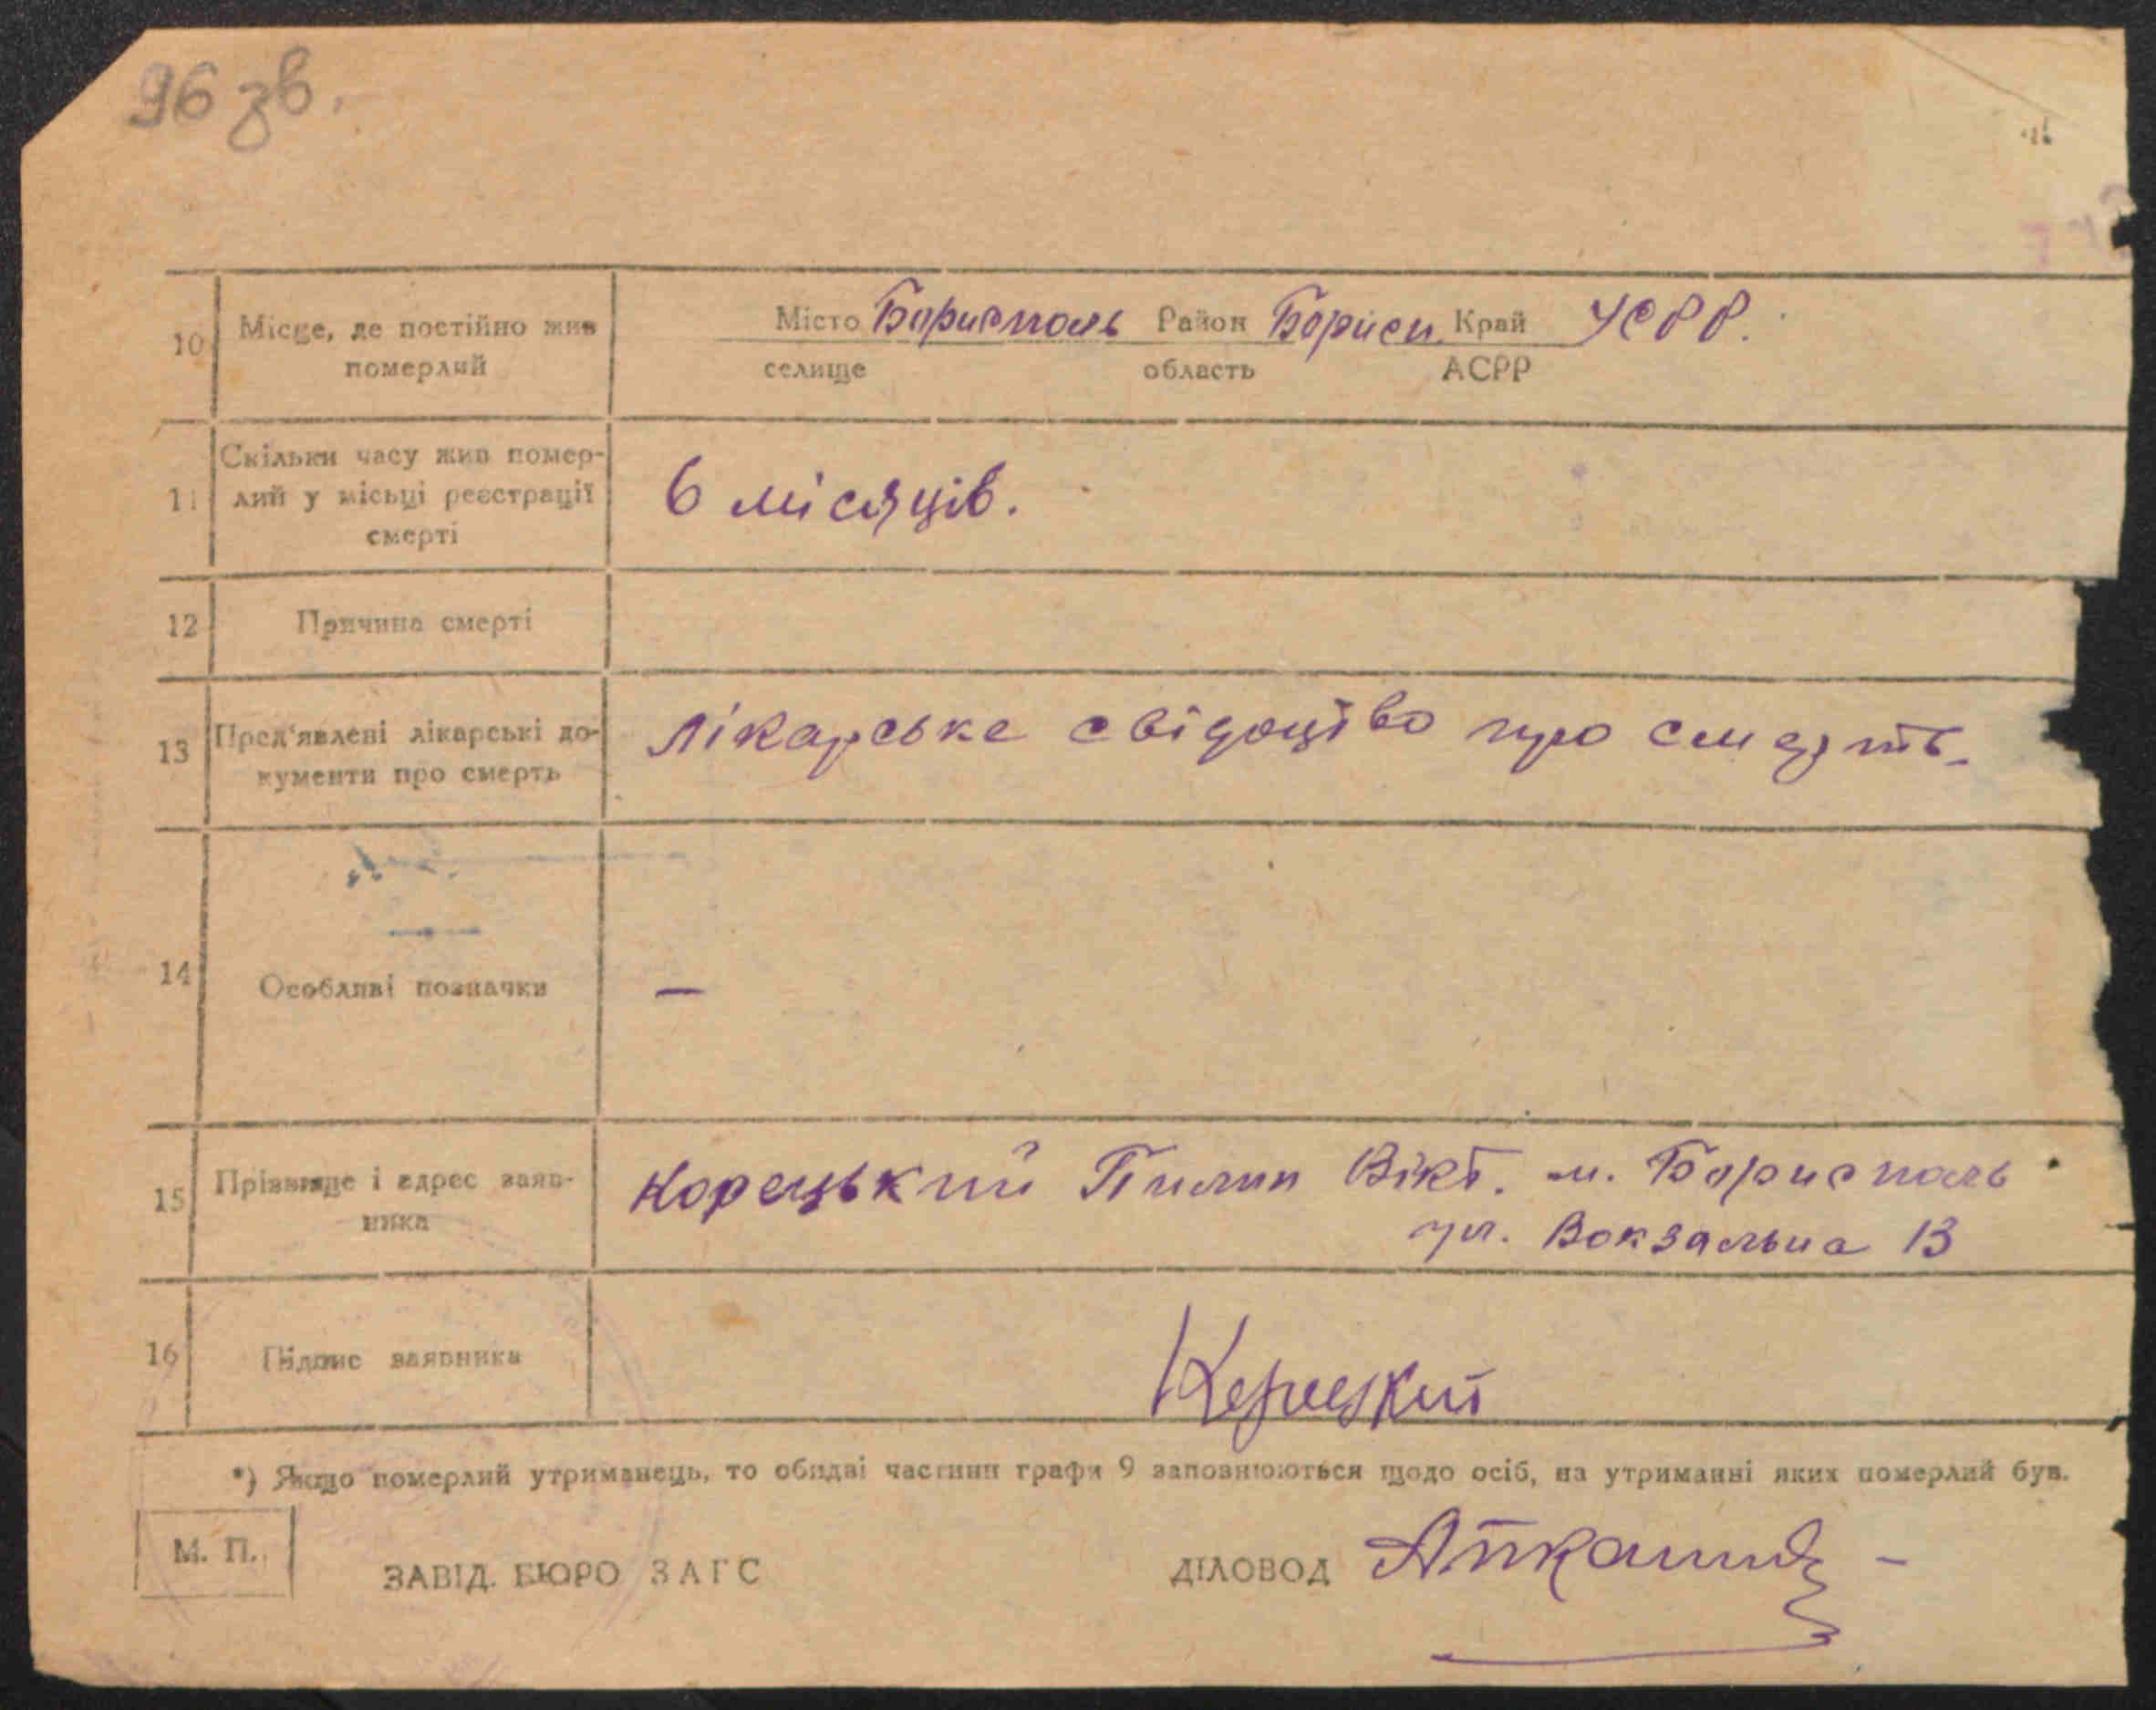 96 зв.
10 Місце, де постійно жив померлий
Місто Борисполь Район Борисп. Край УСРР.
селище область АСРР
11 Скільки часу жив помер-
лий у місьці реєстрації
смерті
6 місяців.
12 Причина смерті
13 Пред'явлені лікарські до-
кументи про смерть
Лікарське свідоцтво про смерть.
14 Особливі позначки
—
15 Прізвище і адрес заяв-
ника
Корецький Пилип Вікт. м. Борисполь
ул. Вокзальна 13
16 Підпис заявника
Корецкий
*) Якщо померлий утриманець, то обидві частини графи 9 заповнюються щодо осіб, на утриманні яких померлий був.
М. П.
ЗАВІД. БЮРО ЗАГС ДІЛОВОД